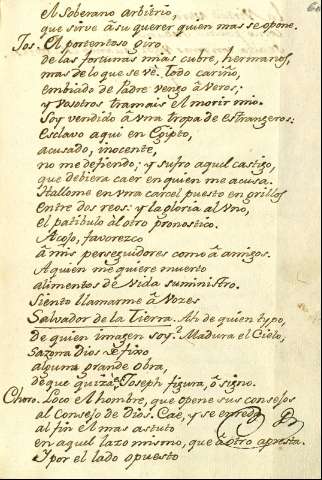 el Soberano arbitrio,
que sirve â su querer quien mas se opone.
Jos. El portentoso giro
de las fortunas mias cubre, hermanos,
mas de lo que se vê. Todo cariño,
embiado de Padre vengo â Veros;
y vosotros tramais el morir mio.
Soy vendido â vna tropa de estrangeros:
Esclavo aqui en Egipto,
acusado, inocente,
no me defiendo; y sufro aquel castigo,
que debiera caer en quien me acusa.
Hallome en vna carcel puesto en grillos
entre dos reos: y la gloria al vno,
el patibulo âl otro pronostico.
Acojo, favorezco
â mis perseguidores como â amigos.
A quien me quiere muerto
alimentos de vida suministro.
Siento llamarme â Vozes
Salvador de la Tierra. Ah de quien typo,
de quien imagen soy? Madura el Cielo,
sazona Dios
alguna grande obra,
de que quizâ Joseph figura, ô signo.
Choro. Loco el hombre, que opone sus consejos
al Consejo de Dios. Cae, y se enreda
al fin el mas astuto
en aquel lazo mismo, que â otro apresta.
Y por el lado opuesto